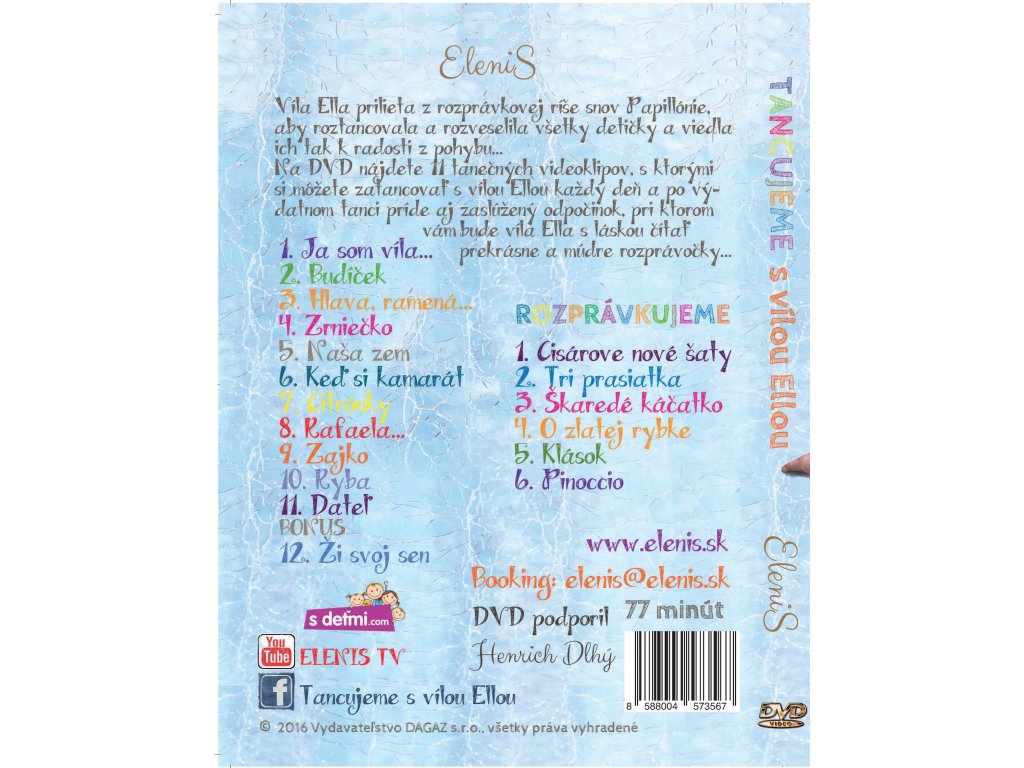 EleniS
Víla Ella prilieta z rozprávkovej ríše snov Papillónie,
aby roztancovala a rozveselila všetky detičky a viedla
ich tak k radosti z pohybu...
Na DVD nájdete 11 tanečných videoklipov, s ktorými
si môžete zatancovať s vílou Ellou každý deň a po vý-
datnom tanci príde aj zaslúžený odpočinok, pri ktorom
vám bude víla Ella s láskou čítať
prekrásne a múdre rozprávočky...
1. Ja som víla...
2. Budíček
3. Hlava, ramená...
4. Zrniečko
5. Naša zem
6. Keď si kamarát
7. Citrónky
8. Rafaela...
9. Zajko
10. Ryba
11. Ďateľ
BONUS
12. Ži svoj sen
ROZPRÁVKUJEME
1. Cisárove nové šaty
2. Tri prasiatka
3. Škaredé káčatko
4. O zlatej rybke
5. Klások
6. Pinoccio
www.elenis.sk
Booking: elenis@elenis.sk
DVD podporil
Henrich Dlhý
77 minút
s deťmi.com
You Tube
ELENIS TV
f
Tancujeme s vílou Ellou
8 588004 573567
© 2016 Vydavateľstvo DAGAZ s.r.o., všetky práva vyhradené
TANCUJEME s vílou Ellou
EleniS
DVD
VIDEO